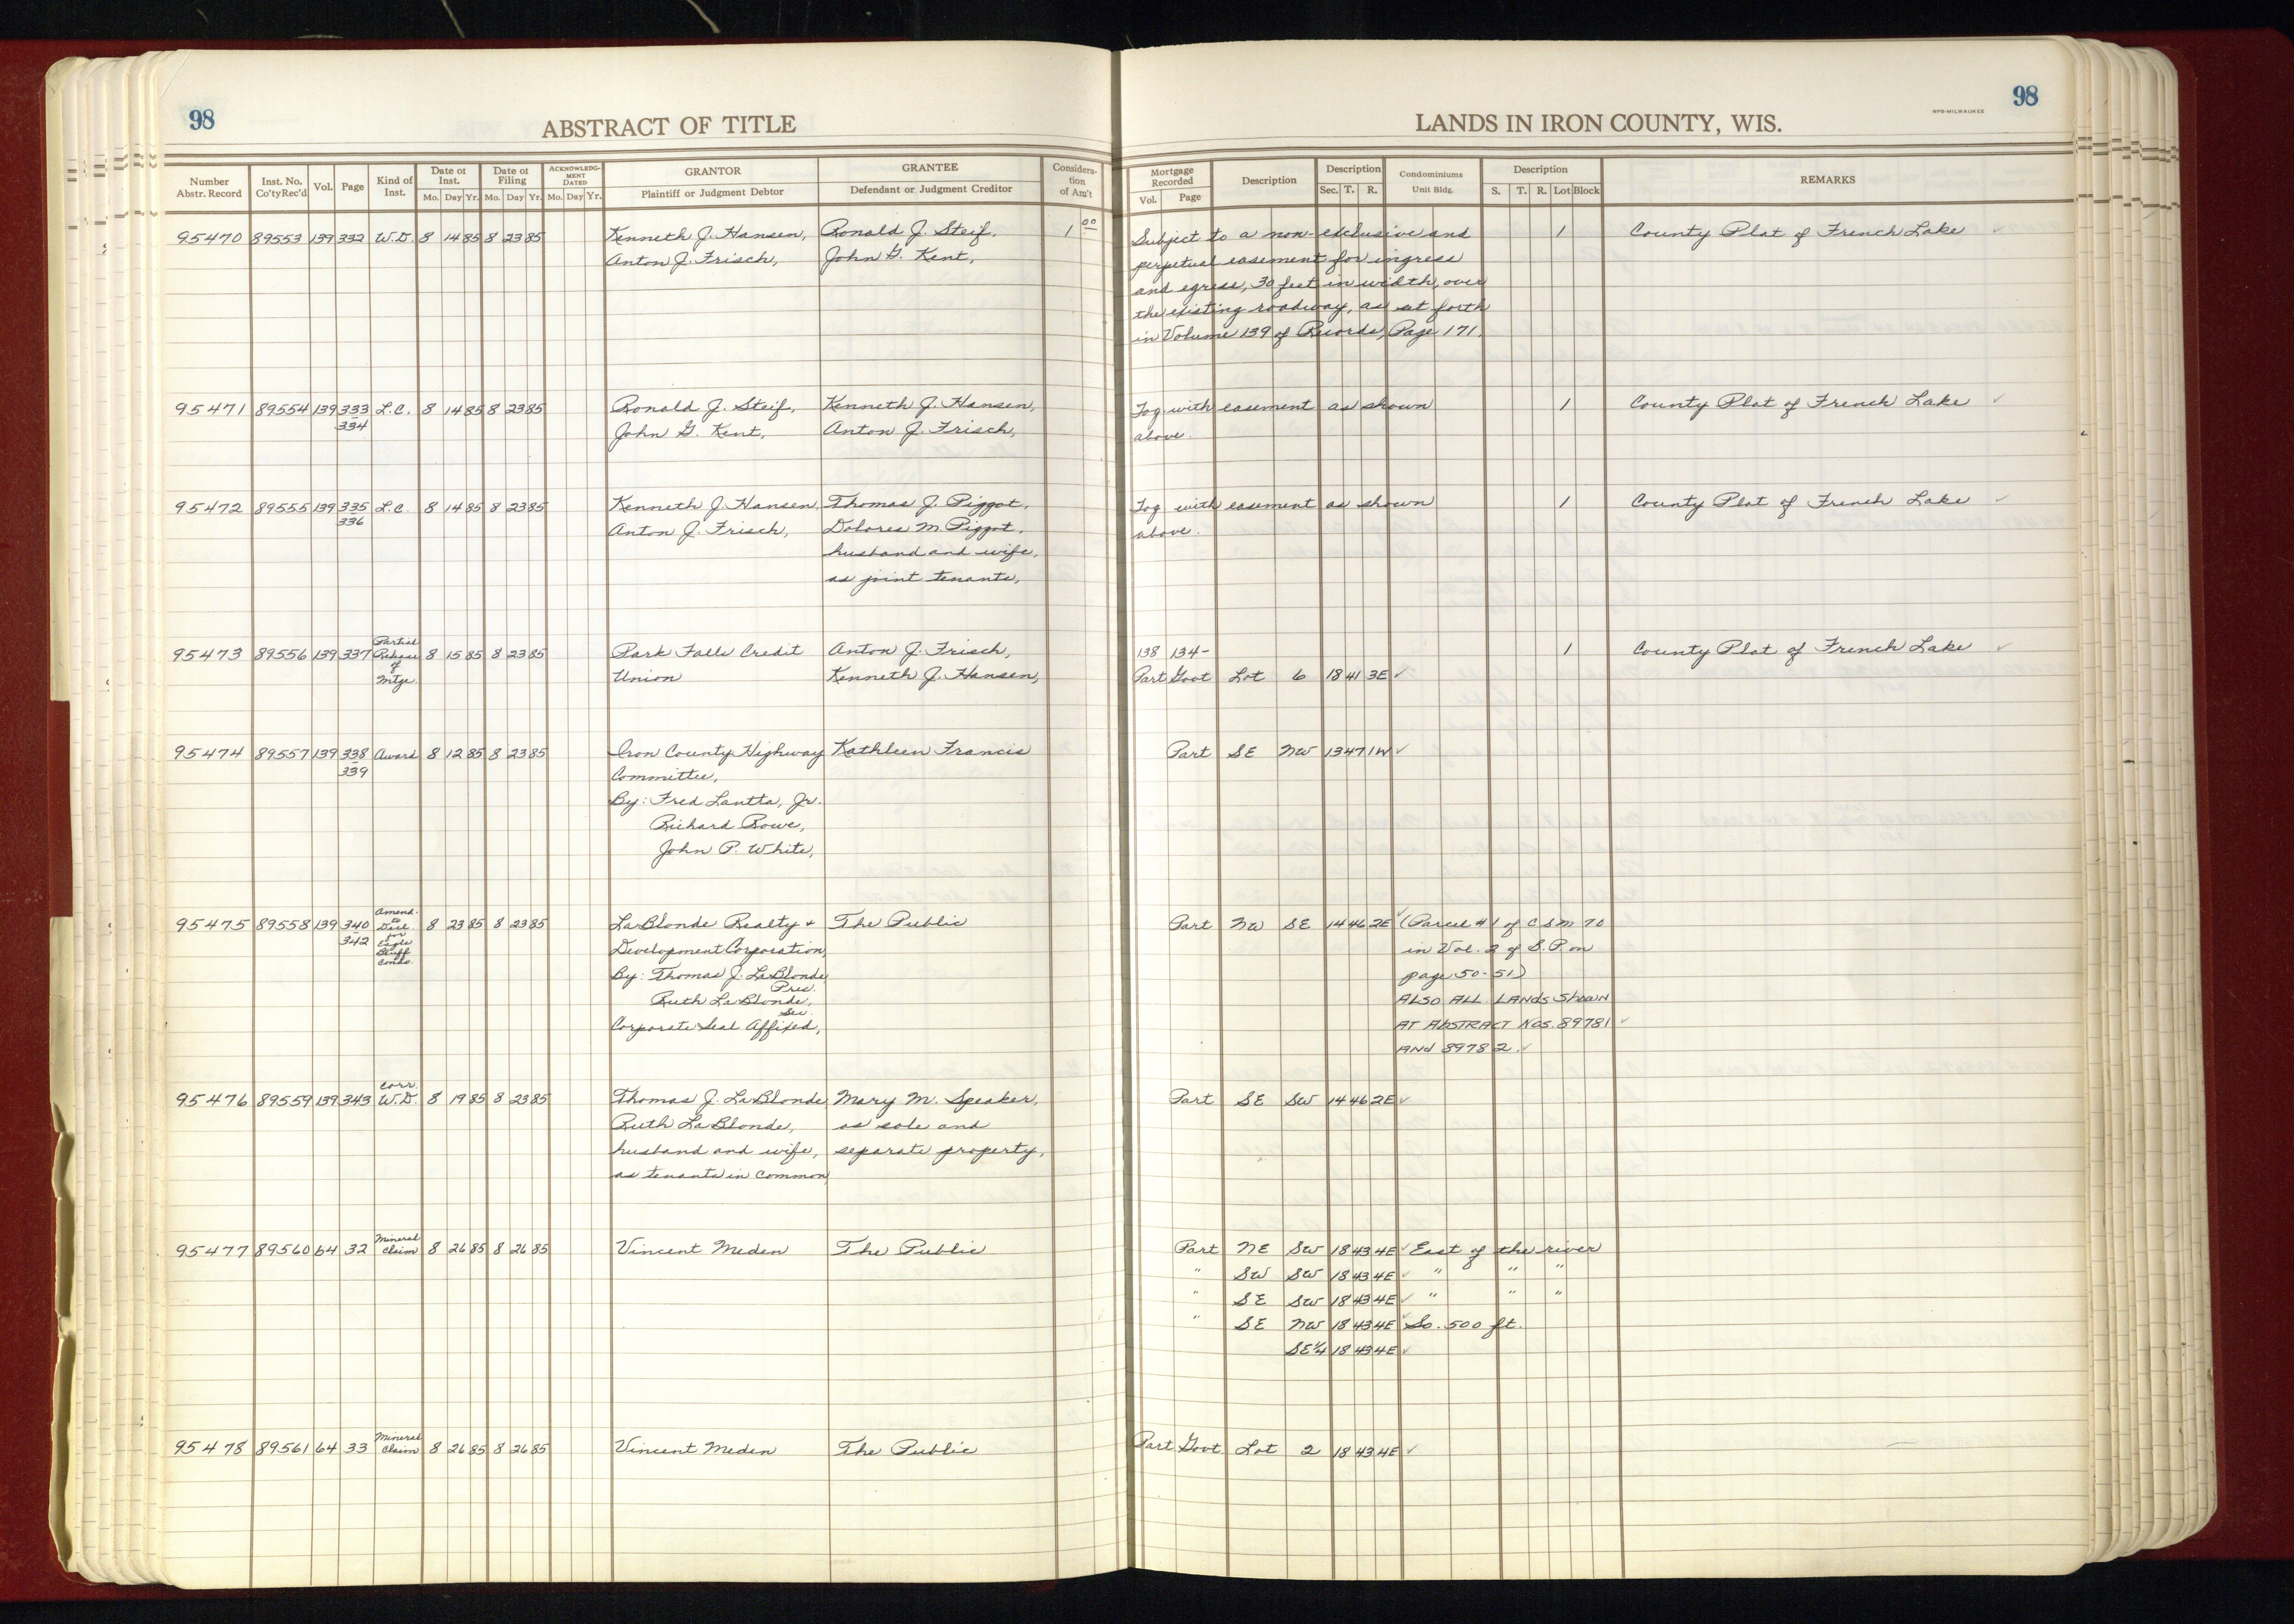 98
ABSTRACT OF TITLE
Number Abstr. Record
Inst. No. Co'ty Rec'd
Vol.
Page
Kind of Inst.
Date of Inst. Mo. Day Yr.
Date of Filing Mo. Day Yr.
ACKNOWLEDGMENT DATED Mo. Day Yr.
GRANTOR Plaintiff or Judgment Debtor
GRANTEE Defendant or Judgment Creditor
Consideration of Am't
95470 89553 139 332 W.D. 8 14 85 8 23 85 Kenneth J. Hansen, Ronald J. Steif, 1 00
Anton J. Frisch, John G. Kent,
95471 89554 139 333 L.C. 8 14 85 8 23 85 Ronald J. Steif, Kenneth J. Hansen,
334 John G. Kent, Anton J. Frisch,
95472 89555 139 335 L.C. 8 14 85 8 23 85 Kenneth J. Hansen, Thomas J. Piggot,
336 Anton J. Frisch, Dolores M. Piggot,
husband and wife,
as joint tenants,
95473 89556 139 337 Partial Release of Mtge. 8 15 85 8 23 85 Park Falls Credit Anton J. Frisch,
Union Kenneth J. Hansen,
95474 89557 139 338 Award 8 12 85 8 23 85 Iron County Highway Kathleen Francis
339 Committee,
By: Fred Lantta, Jr.
Richard Rowe,
John P. White,
95475 89558 139 340 Amend. to Decl. for Eagle Bluff Condo. 8 23 85 8 23 85 LaBlonde Realty + The Public
342 Development Corporation,
By: Thomas J. LaBlonde,
Pres.
Ruth LaBlonde,
Sec.
Corporate Seal Affixed,
95476 89559 139 343 Corr. W.D. 8 19 85 8 23 85 Thomas J. LaBlonde, Mary M. Speaker,
Ruth LaBlonde, as sole and
husband and wife, separate property,
as tenants in common,
95477 89560 64 32 Mineral Claim 8 26 85 8 26 85 Vincent Meden The Public
95478 89561 64 33 Mineral Claim 8 26 85 8 26 85 Vincent Meden The Public
LANDS IN IRON COUNTY, WIS.
WPB-MILWAUKEE
98
Mortgage Recorded Vol. Page
Description
Description Sec. T. R.
Condominiums Unit Bldg.
Description S. T. R. Lot Block
REMARKS
Subject to a non-exclusive and 1 County Plat of French Lake ✓
perpetual easement for ingress
and egress, 30 feet in width, over
the existing roadway, as set forth
in Volume 139 of Records, Page 171,
Tog. with easement as shown 1 County Plat of French Lake ✓
above.
Tog. with easement as shown 1 County Plat of French Lake ✓
above.
138 134- 1 County Plat of French Lake ✓
Part Govt Lot 6 18 41 3E ✓
Part SE NW 13 47 1W ✓
Part NW SE 14 46 2E ✓ (Parcel #1 of CSM 70
in Vol. 2 of S.P. on
page 50-51)
ALSO ALL LANDS SHOWN
AT ABSTRACT NOS. 89781 ✓
AND 89782. ✓
Part SE SW 14 46 2E ✓
Part NE SW 18 43 4E ✓ East of the river
" SW SW 18 43 4E ✓ " " "
" SE SW 18 43 4E ✓ " " "
" SE NW 18 43 4E ✓ So. 500 ft.
SE¼ 18 43 4E ✓
Part Govt. Lot 2 18 43 4E ✓